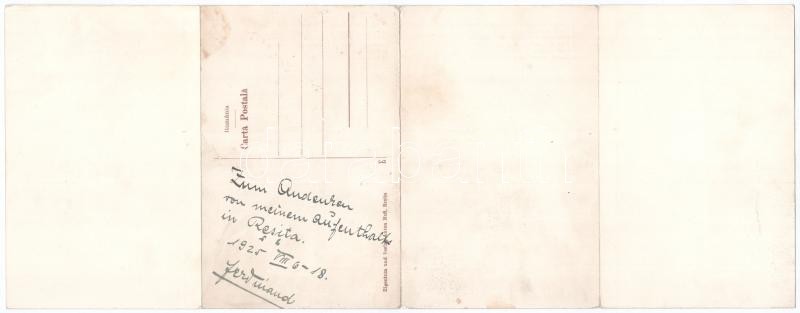 România
Carta Postală
Zum Andenken
von meinem Aufenthalte
in Resita.
1925 VIII 6-18.
Ferdinand
Eigentum und Hoff, Resita
E